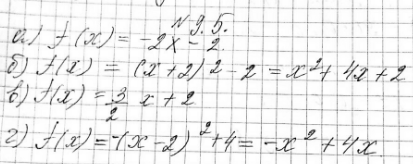 №9.5.
а) f(x) = -2x - 2.
б) f(x) = (x+2)² - 2 = x² + 4x + 2
в) f(x) = 3/2 x + 2
г) f(x) = -(x-2)² + 4 = -x² + 4x